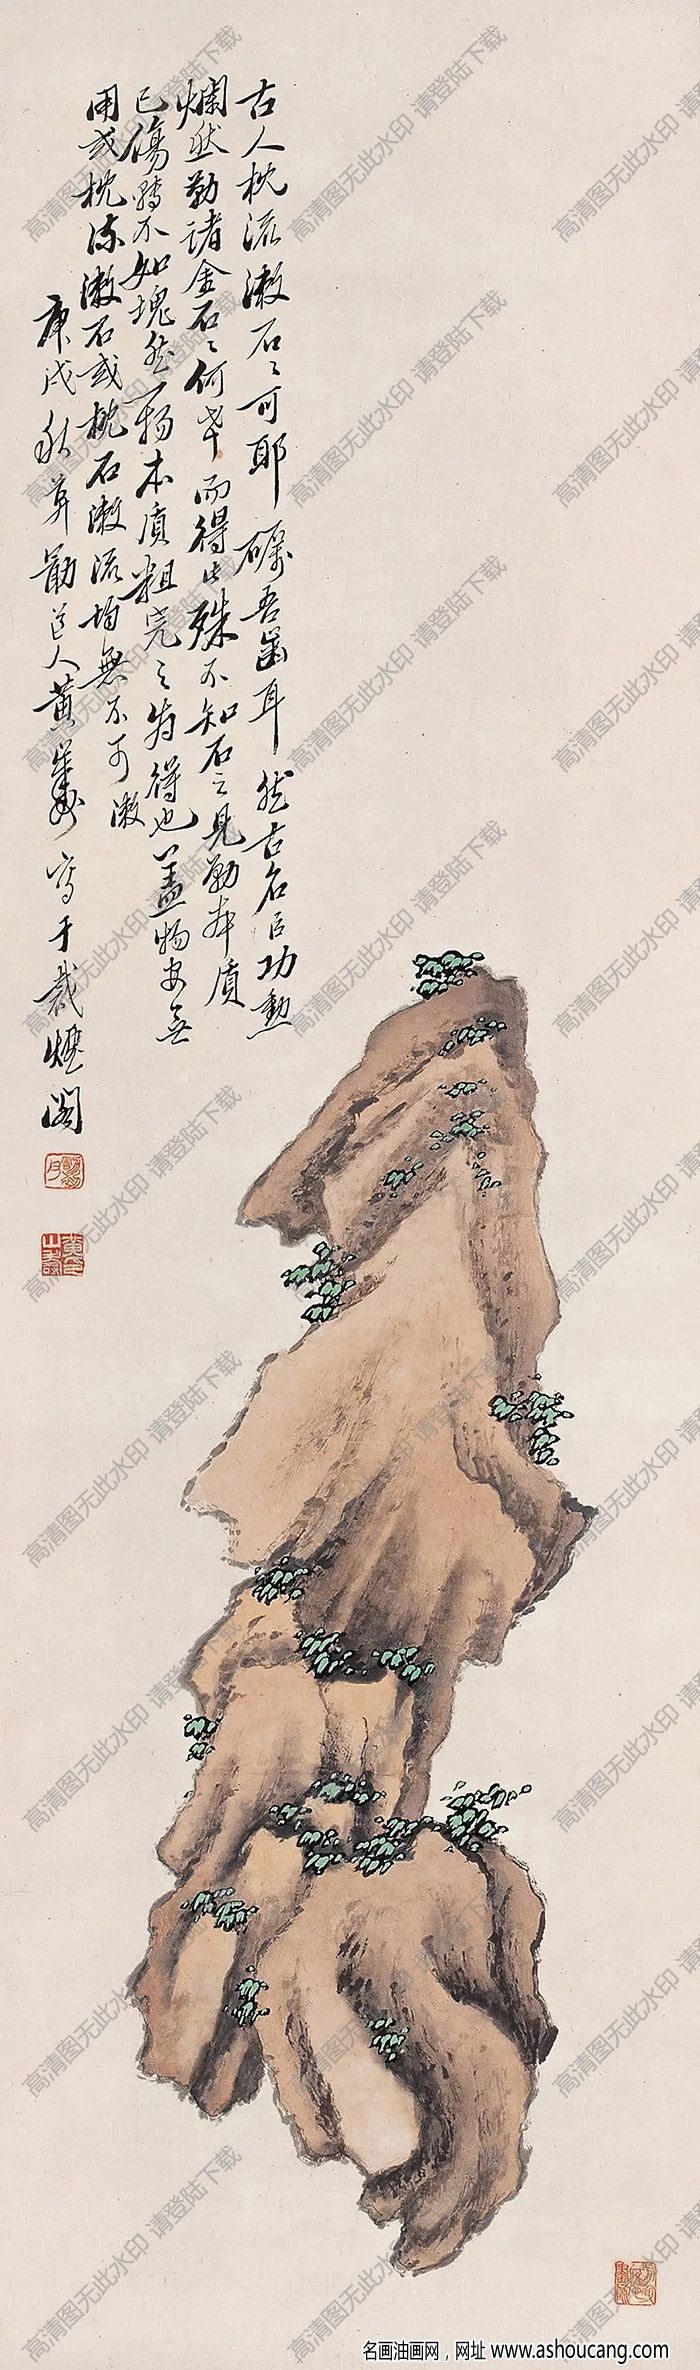 古人枕流漱石石可耶礪吾齒耳然古名臣功勳
爛然勒諸金石石何幸而得此殊不知石之見勒本質
已傷矣不如塊然一物本質粗完之為得也蓋物安無
用或枕流漱石或枕石漱流均無不可漱
庚戌秋 勖道人黃山壽寫于裁煙閣
黃山壽
高清图无此水印 请登陆下载
名画油画网，网址 www.ashoucang.com